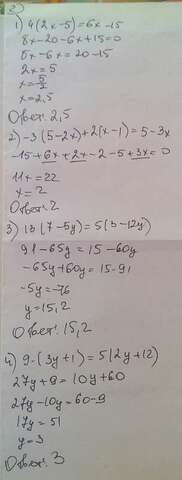 2)
1) 4(2x-5)=6x-15
8x-20-6x+15=0
8x-6x=20-15
2x=5
x=5/2
x=2,5
Ответ: 2,5
2) -3(5-2x)+2(x-1)=5-3x
-15+6x+2x-2-5+3x=0
11x=22
x=2
Ответ: 2
3) 13(7-5y)=5(3-12y)
91-65y=15-60y
-65y+60y=15-91
-5y=-76
y=15,2
Ответ: 15,2
4) 9-(3y+1)=5(2y+12)
27y+9=10y+60
27y-10y=60-9
17y=51
y=3
Ответ: 3